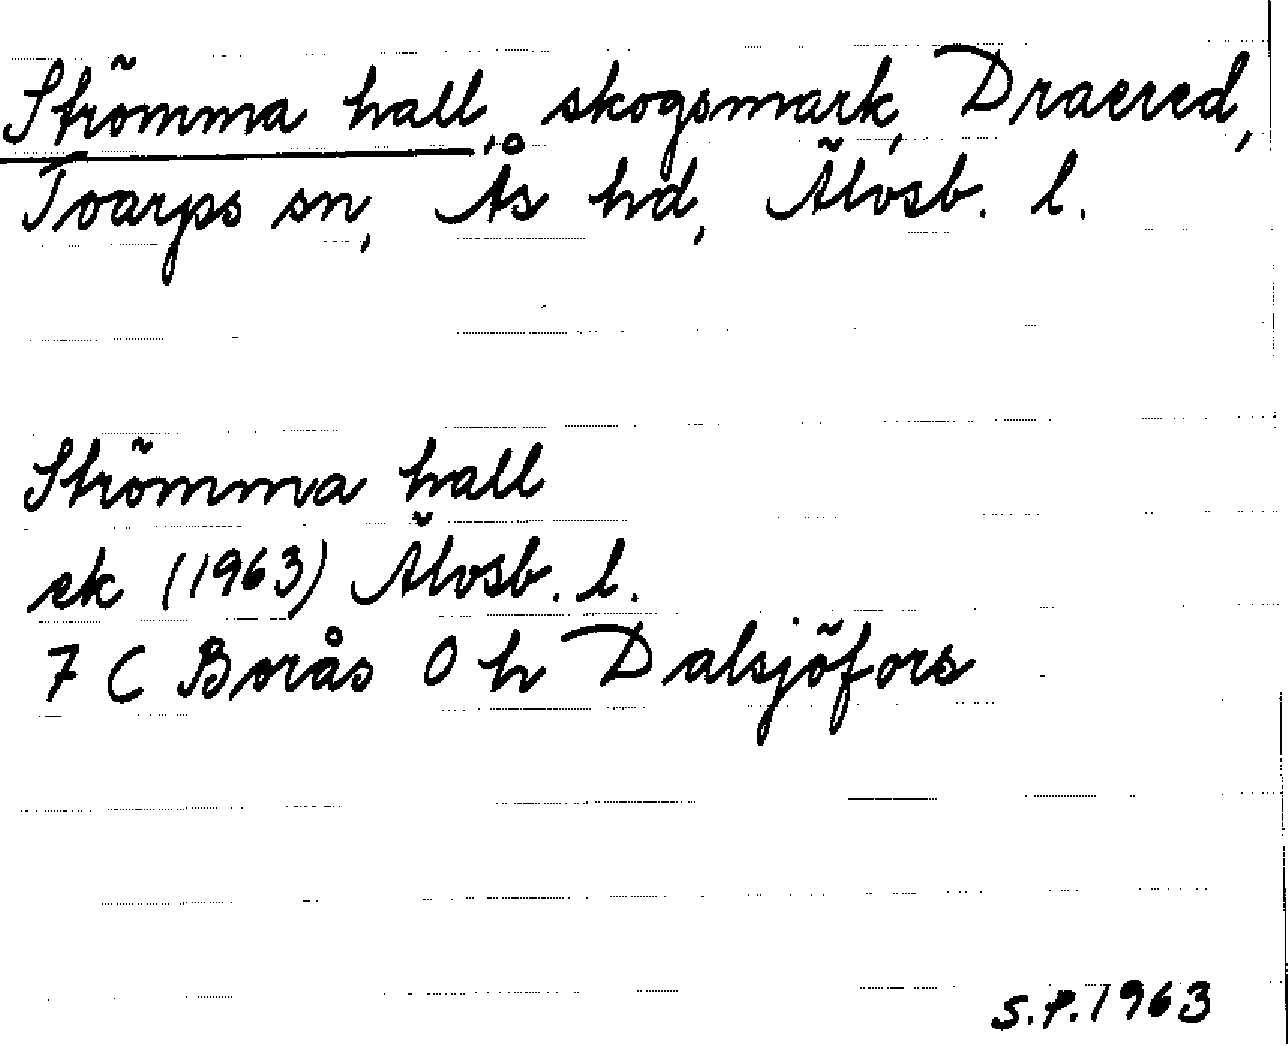 Strömma hall, skogsmark, Draered,
Toarps sn, Ås hd, Älvsb. l.
Strömma hall
ek (1963) Älvsb. l.
7 C Borås 0 h Dalsjöfors
S.P. 1963